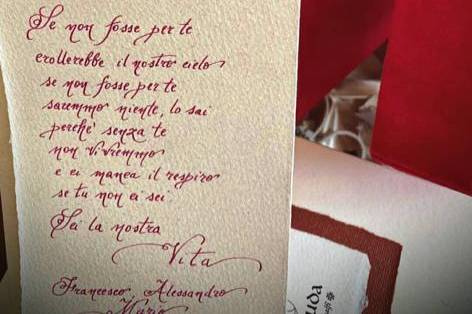 Se non fosse per te
crollerebbe il nostro cielo
se non fosse per te
saremmo niente, lo sai
perche' senza te
non vivremmo
e ci manca il respiro
se tu non ci sei
Sei la nostra
Vita
Francesco, Alessandro
Mario
uda